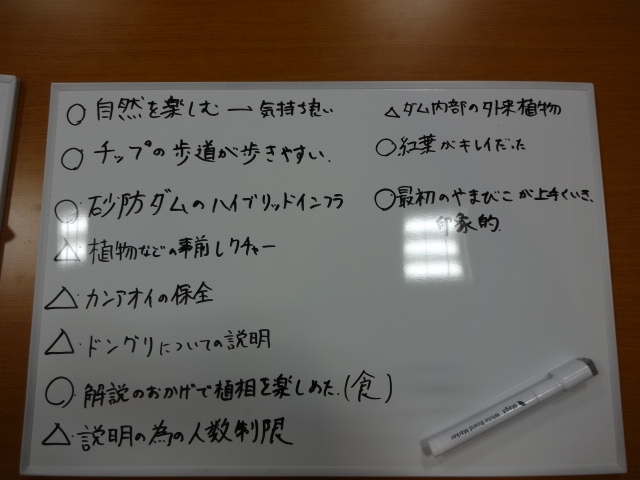 ○ 自然を楽しむ → 気持ち良い
○ チップの歩道が歩きやすい.
○ 砂防ダムのハイブリッドインフラ
△ 植物などの事前レクチャー
△ カンアオイの保全
△ ドングリについての説明
○ 解説のおかげで植相を楽しめた.(食)
△ 説明の為の人数制限
△ ダム内部の外来植物
○ 紅葉がキレイだった
○ 最初のやまびこが上手くいき、
印象的.
Magx White Board Marker